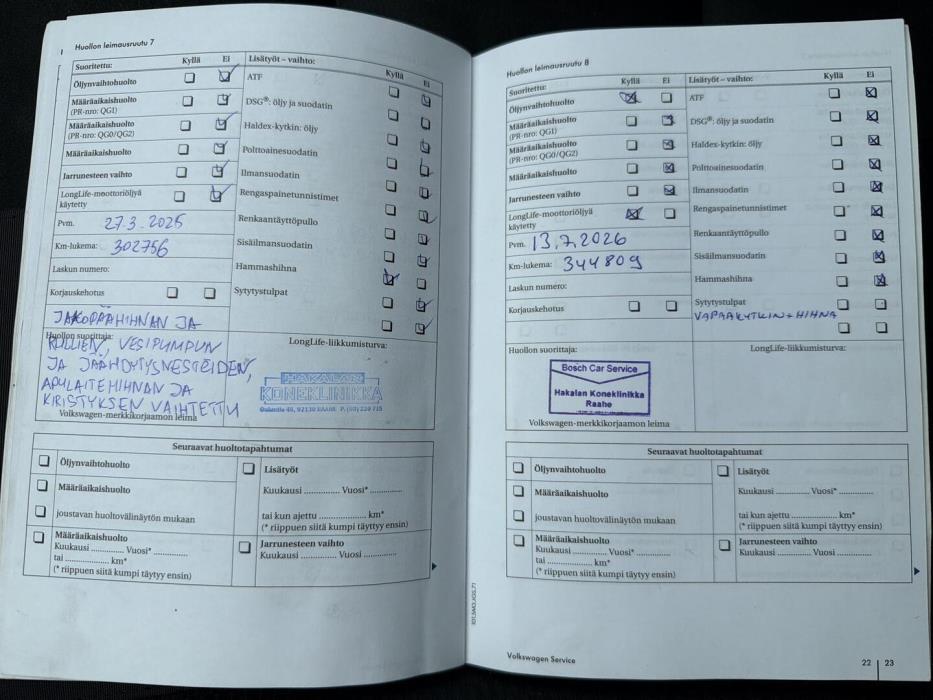 Huollon leimausruutu 7
Suoritettu: Kyllä Ei
Öljynvaihtohuolto
Määräaikaishuolto
(PR-nro: QG1)
Määräaikaishuolto
(PR-nro: QG0/QG2)
Määräaikaishuolto
Jarrunesteen vaihto
LongLife-moottoriöljyä
käytetty
Pvm. 27.3.2025
Km-lukema: 302756
Laskun numero:
Korjauskehotus
Lisätyöt – vaihto: Kyllä Ei
ATF
DSG®: öljy ja suodatin
Haldex-kytkin: öljy
Polttoainesuodatin
Ilmansuodatin
Rengaspainetunnistimet
Renkaantäyttöpullo
Sisäilmansuodatin
Hammashihna
Sytytystulpat
JAKOPÄÄHIHNAN JA
Huollon suorittaja:
RULLIEN, VESIPUMPUN
JA JÄÄHDYTYSNESTEIDEN,
APULAITEHIHNAN JA
KIRISTYKSEN VAIHTETTU
Volkswagen-merkkikorjaamon leima
LongLife-liikkumisturva:
HAKALAN
KONEKLINIKKA
Seuraavat huoltotapahtumat
Öljynvaihtohuolto
Määräaikaishuolto
joustavan huoltovälinäytön mukaan
Määräaikaishuolto
Kuukausi ............. Vuosi* .............
tai .................... km*
(* riippuen siitä kumpi täytyy ensin)
Lisätyöt
Kuukausi .............. Vuosi* ............
tai kun ajettu .................. km*
(* riippuen siitä kumpi täytyy ensin)
Jarrunesteen vaihto
Kuukausi ............. Vuosi ..............
Huollon leimausruutu 8
Suoritettu: Kyllä Ei
Öljynvaihtohuolto
Määräaikaishuolto
(PR-nro: QG1)
Määräaikaishuolto
(PR-nro: QG0/QG2)
Määräaikaishuolto
Jarrunesteen vaihto
LongLife-moottoriöljyä
käytetty
Pvm. 13.7.2026
Km-lukema: 344809
Laskun numero:
Korjauskehotus
Lisätyöt – vaihto: Kyllä Ei
ATF
DSG®: öljy ja suodatin
Haldex-kytkin: öljy
Polttoainesuodatin
Ilmansuodatin
Rengaspainetunnistimet
Renkaantäyttöpullo
Sisäilmansuodatin
Hammashihna
Sytytystulpat
VAPAAKYTKIN + HIHNA
Huollon suorittaja:
Bosch Car Service
Hakalan Koneklinikka
Raahe
Volkswagen-merkkikorjaamon leima
LongLife-liikkumisturva:
Seuraavat huoltotapahtumat
Öljynvaihtohuolto
Määräaikaishuolto
joustavan huoltovälinäytön mukaan
Määräaikaishuolto
Kuukausi ............. Vuosi* .............
tai .................... km*
(* riippuen siitä kumpi täytyy ensin)
Lisätyöt
Kuukausi .............. Vuosi* ............
tai kun ajettu .................. km*
(* riippuen siitä kumpi täytyy ensin)
Jarrunesteen vaihto
Kuukausi ............. Vuosi ..............
Volkswagen Service
22 23